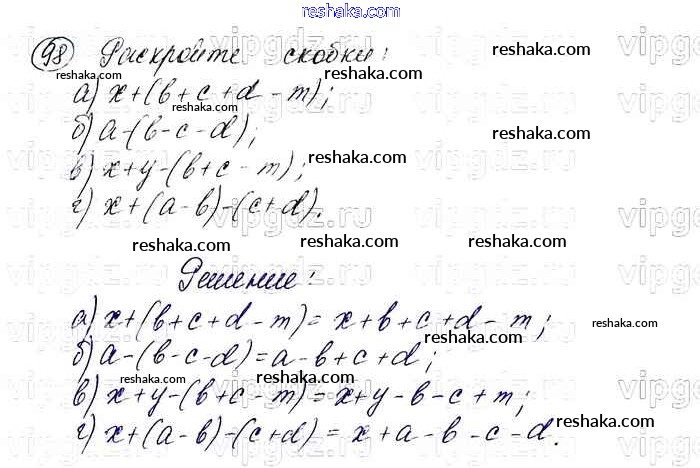 reshaka.com
98 Раскройте скобки:
reshaka.com reshaka.com
а) x+(b+c+d-m);
reshaka.com
б) a-(b-c-d);
reshaka.com
в) x+y-(b+c-m);
reshaka.com reshaka.com
г) x+(a-b)-(c+d).
reshaka.com reshaka.com reshaka.com
Решение:
а) x+(b+c+d-m)=x+b+c+d-m;
reshaka.com
б) a-(b-c-d)=a-b+c+d;
reshaka.com reshaka.com
в) x+y-(b+c-m)=x+y-b-c+m;
reshaka.com reshaka.com
г) x+(a-b)-(c+d)=x+a-b-c-d.
reshaka.com